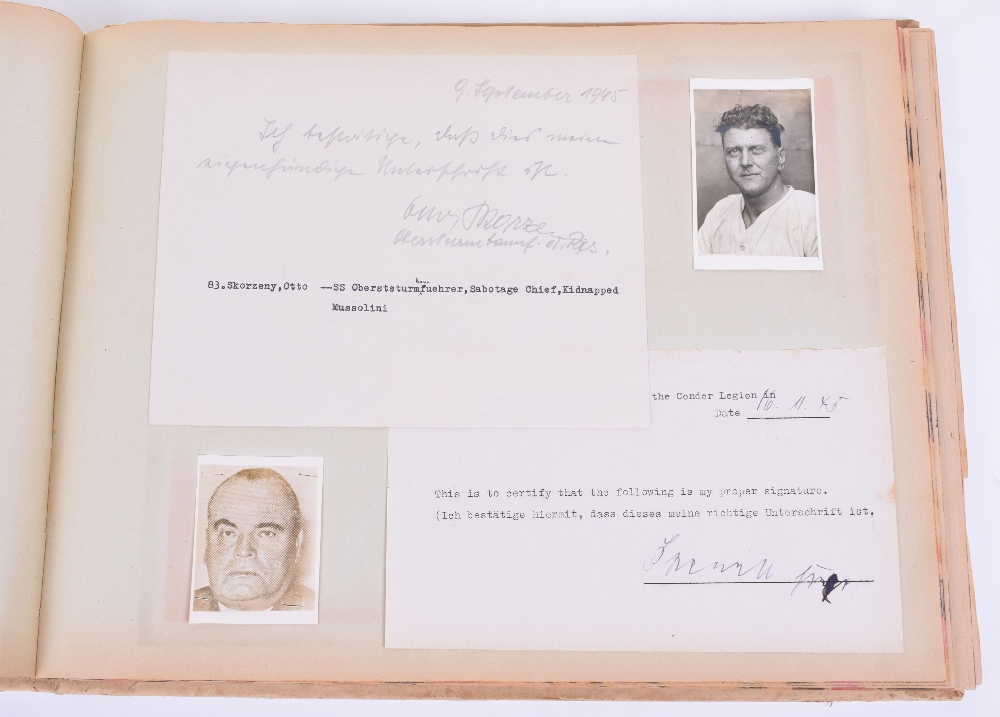 9. September 1945
Ich bestätige, daß dies meine
eigenhändige Unterschrift ist.
Otto Skorzeny
Obersturmbannf. d. Res.
83.Skorzeny,Otto —SS Oberststurmfuehrer,Sabotage Chief,Kidnapped
bann
Mussolini
the Condor Legion in
Date 16. 11. 45
This is to certify that the following is my proper signature.
(Ich bestätige hiermit, dass dieses meine richtige Unterschrift ist.